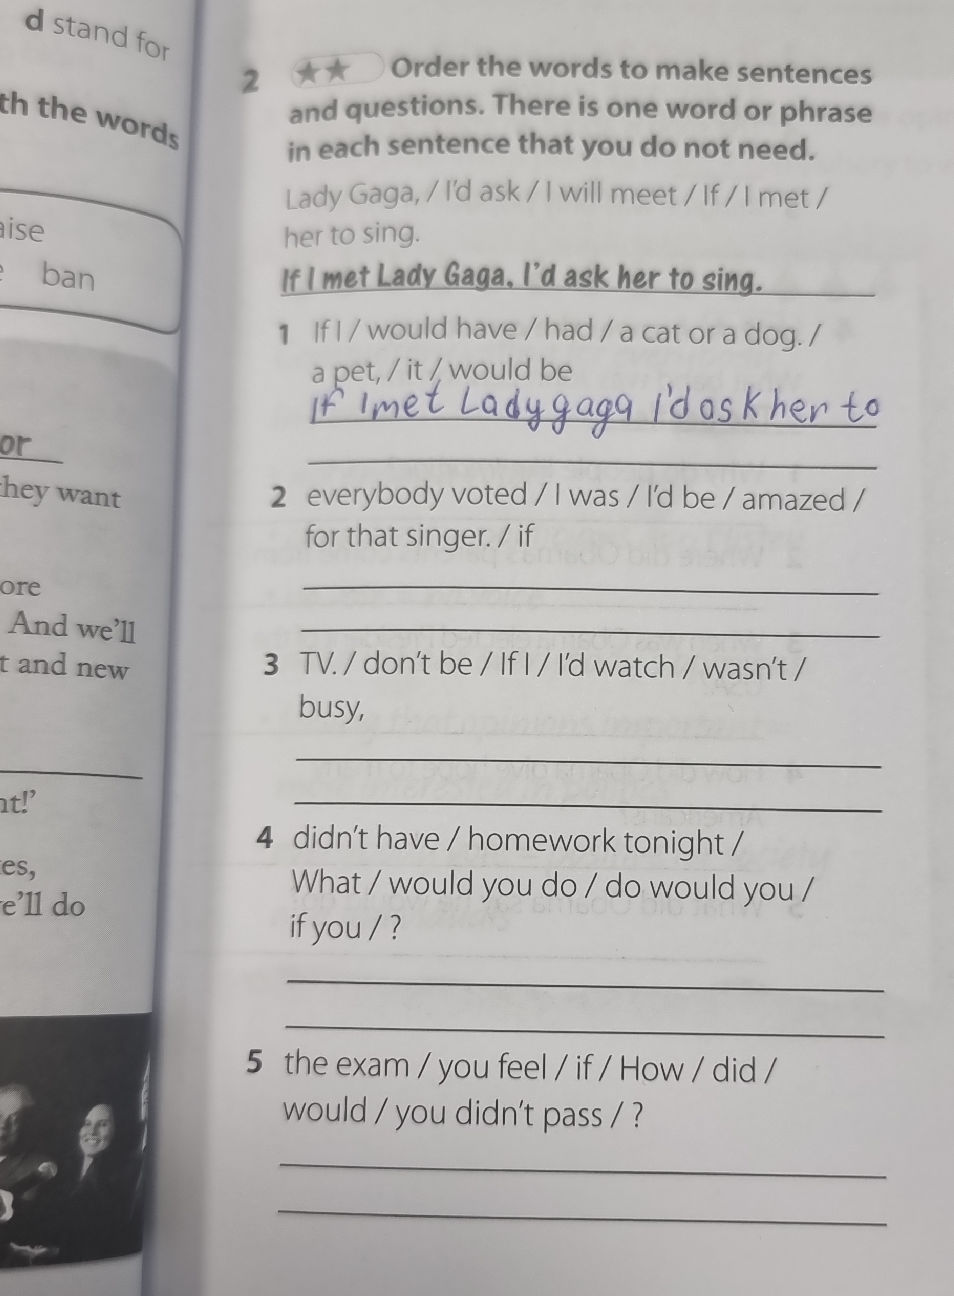 d stand for
th the words
aise
ban
or
they want
ore
And we'll
t and new
nt!'
es,
e'll do
2 ★★ Order the words to make sentences
and questions. There is one word or phrase
in each sentence that you do not need.
Lady Gaga, / I'd ask / I will meet / If / I met /
her to sing.
If I met Lady Gaga, I'd ask her to sing.
1 If I / would have / had / a cat or a dog. /
a pet, / it / would be
If I met Lady gaga I'd ask her to
2 everybody voted / I was / I'd be / amazed /
for that singer. / if
3 TV. / don't be / If I / I'd watch / wasn't /
busy,
4 didn't have / homework tonight /
What / would you do / do would you /
if you / ?
5 the exam / you feel / if / How / did /
would / you didn't pass / ?